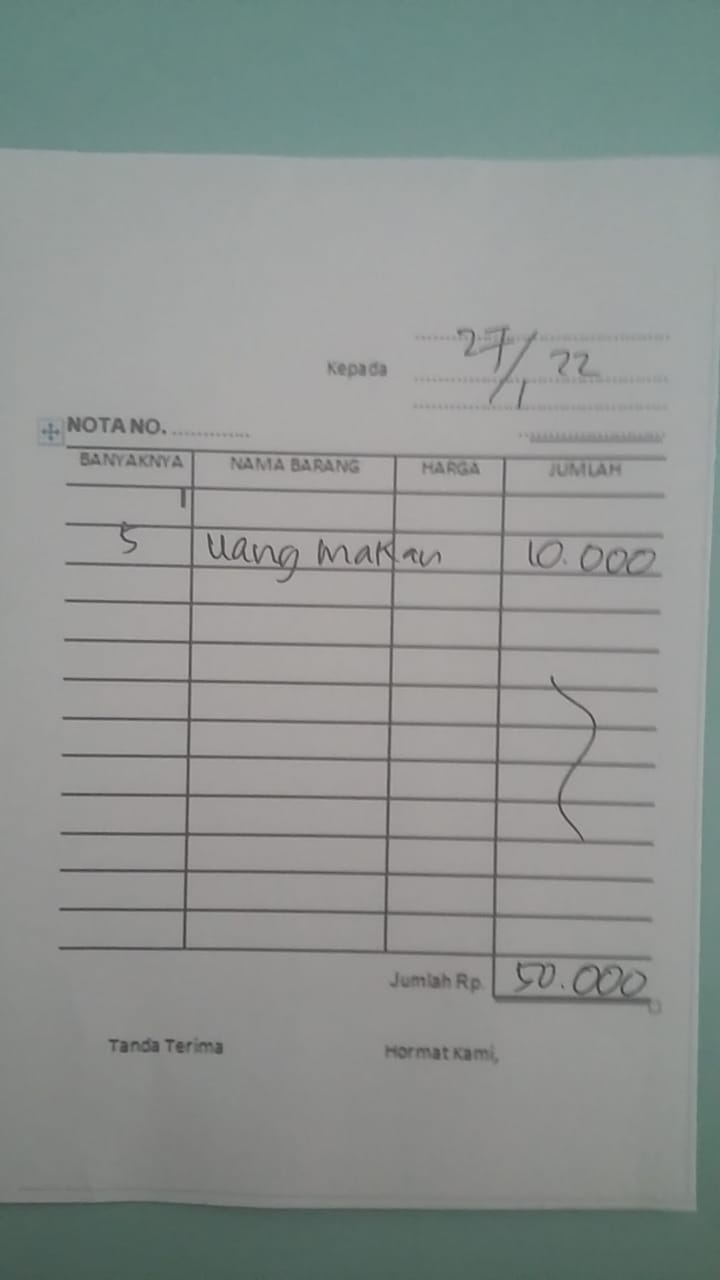 27/1 22
Kepada
NOTA NO. ............
BANYAKNYA NAMA BARANG HARGA JUMLAH
5 uang makan 10.000
Jumlah Rp. 50.000
Tanda Terima Hormat Kami,